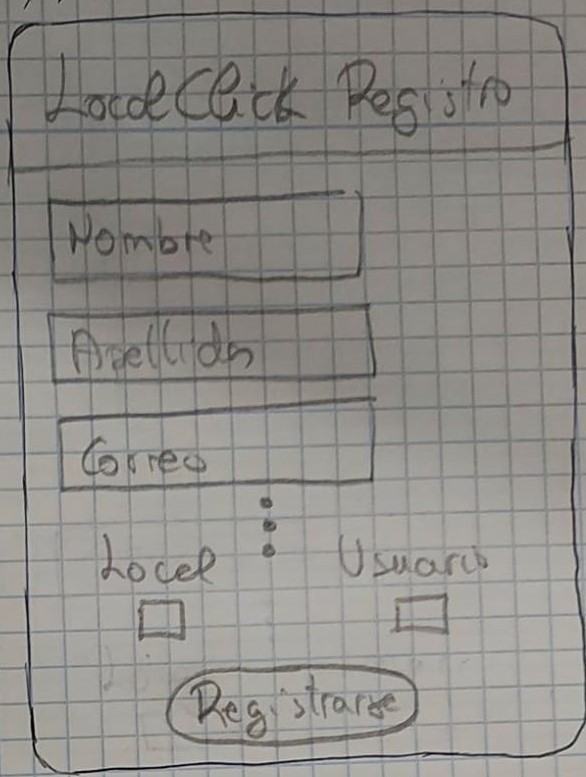 LocalClick Registro
Nombre
Apellidos
Correo
Local Usuario
Registrarse